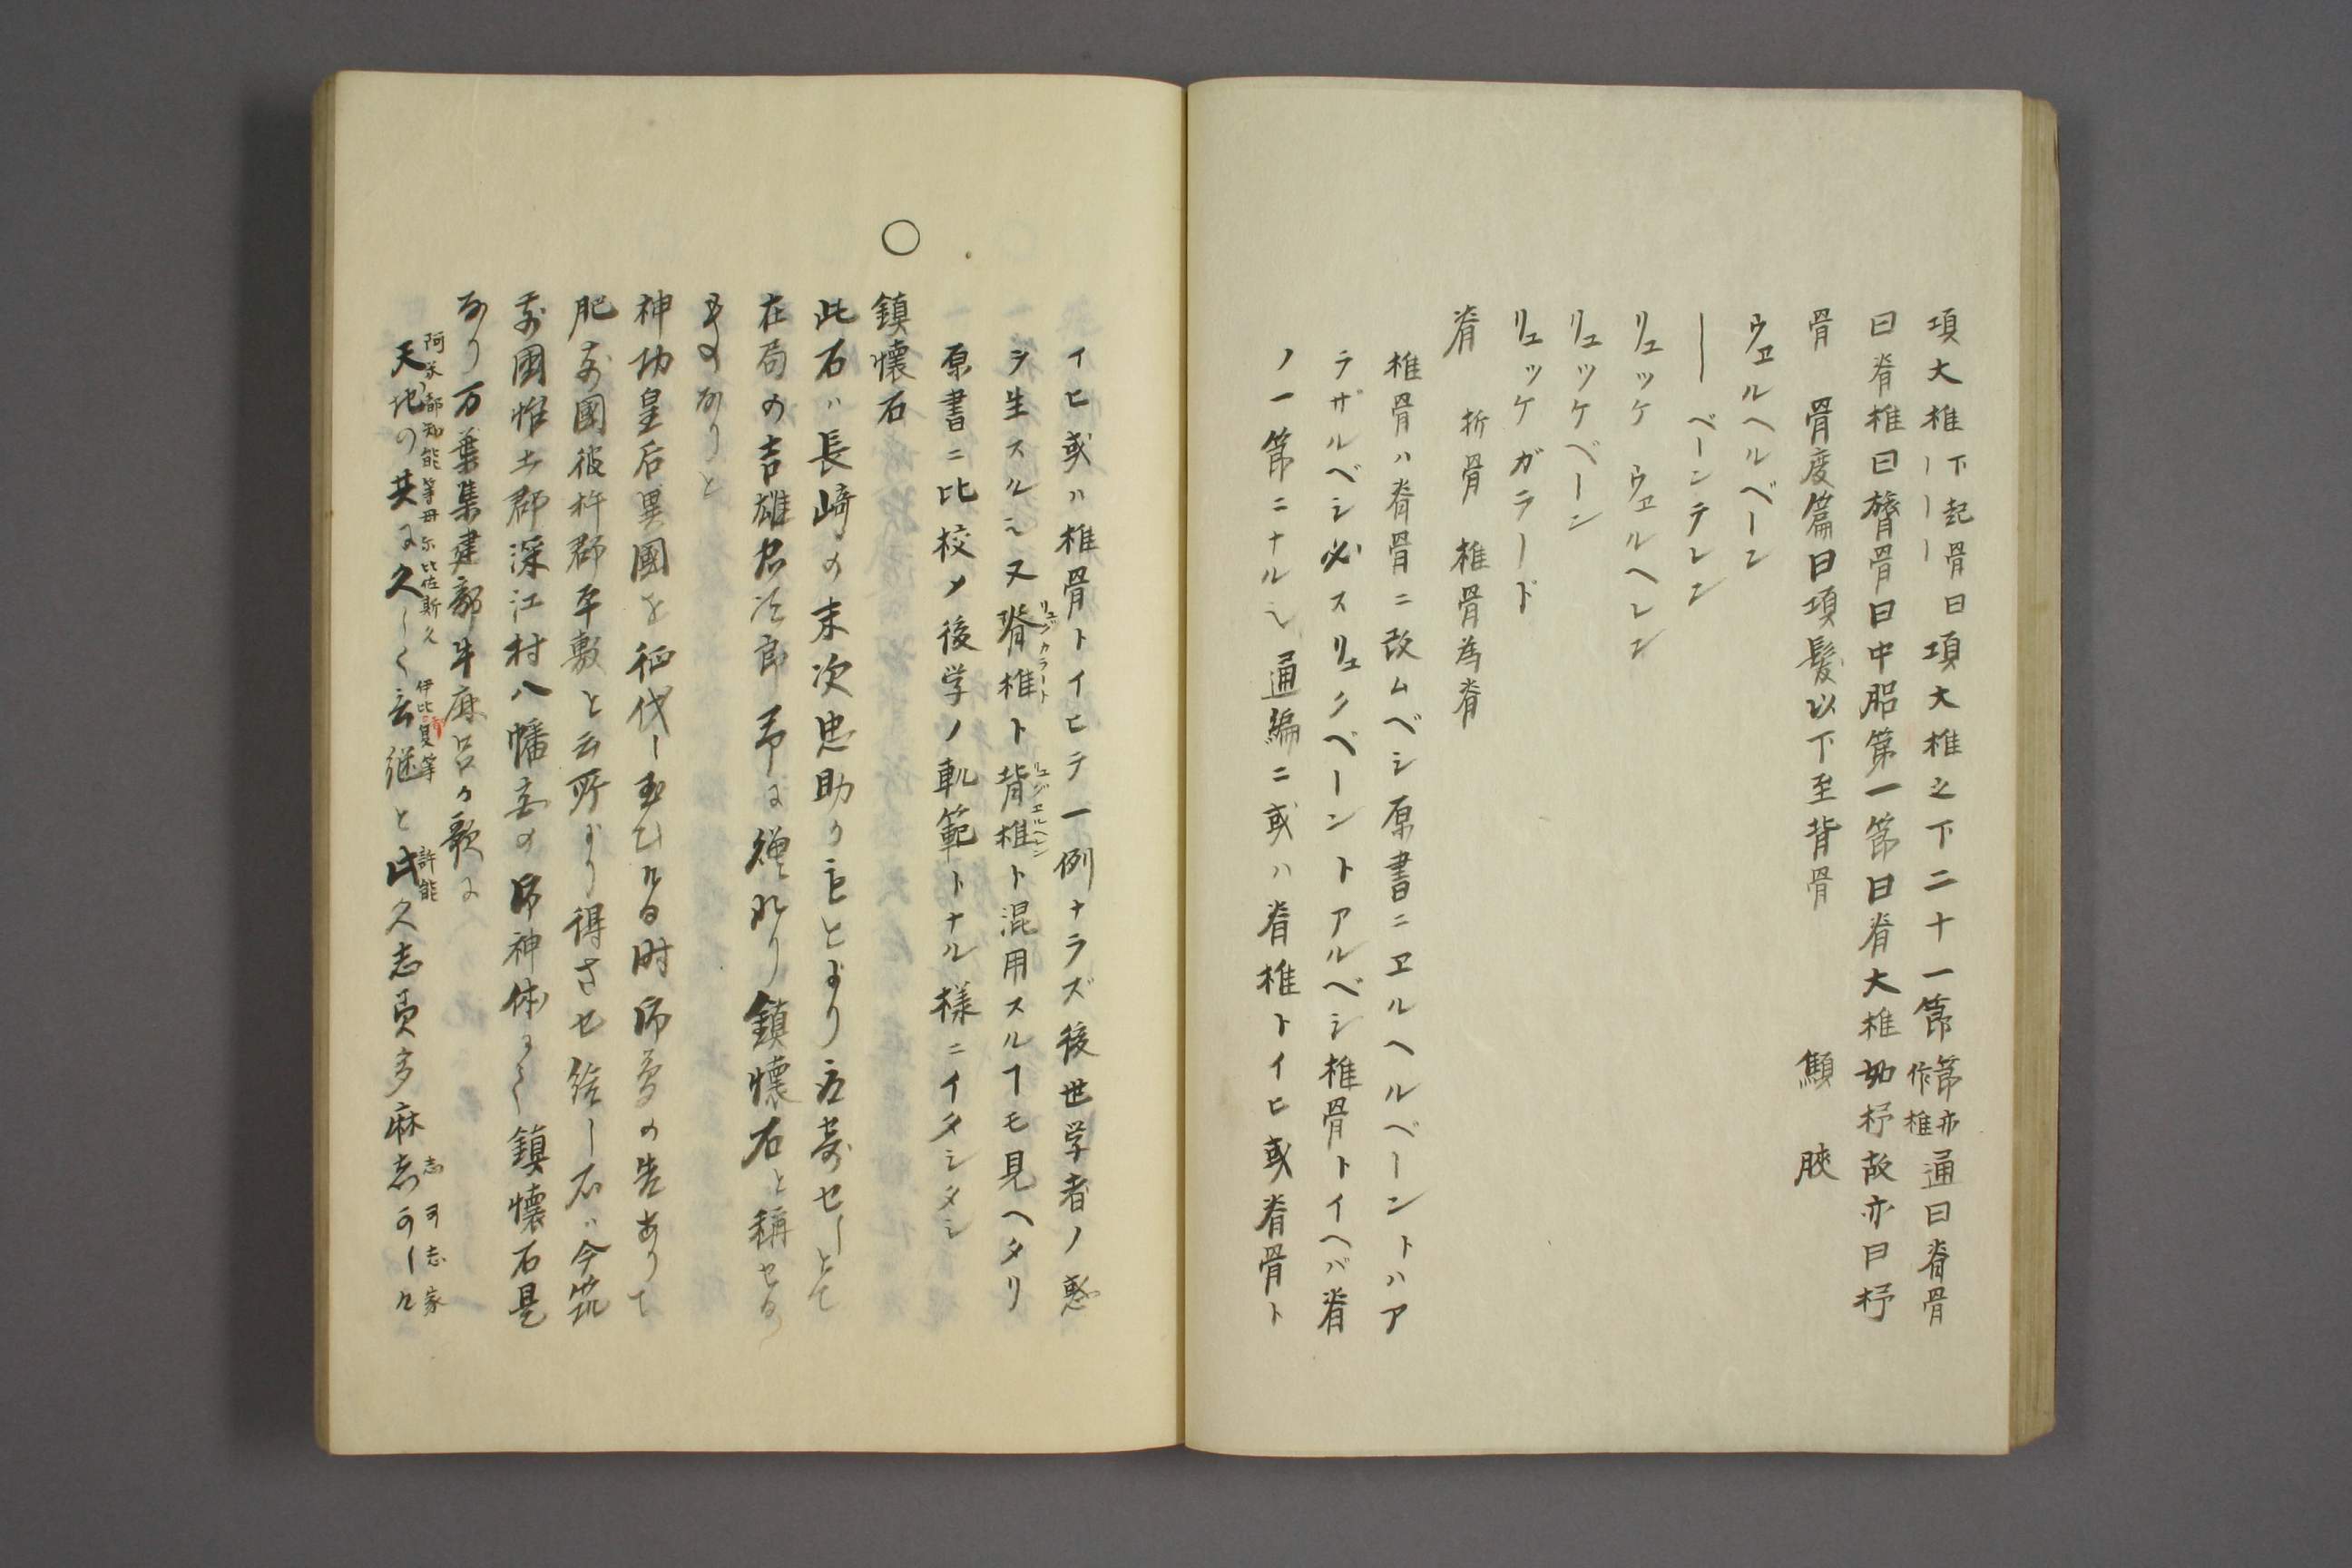 項大椎下起骨曰項大椎之下二十一節節亦作椎通曰脊骨
曰脊椎曰膂骨曰中䏚第一節曰脊大椎如杼故亦曰杼
骨 骨度篇曰項髪以下至背骨 顒 胦
ウヱルヘルベーン
ー ベーンテレン
リュッケ ウヱルヘレン
リュッケベーン
リュッケガラード
脊 折骨 椎骨為脊
椎骨ハ脊骨ニ改ムベシ原書ニヱルヘルベーントハア
ラザルベシ必スリュクベーントアルベシ椎骨トイヘバ脊
ノ一節ニナル也通編ニ或ハ脊椎トイヒ或脊骨ト
イヒ或ハ椎骨トイヒテ一例ナラズ後世学者ノ惑
ヲ生スル也又脊椎ト背椎ト混用スルヿモ見ヘタリ
リュグガラート
リュグエルヘレン
原書ニ比校メ後学ノ軌範トナル様ニイタシタシ
○
鎮懐石
此石ハ長崎の末次忠助より寄セしとて
在局の吉雄忠次郎予に贈れり鎮懐石と称せる
ものなりと
神功皇后異國を征伐し玉ひける时御夢の告ありて
肥前國彼杵郡平敷と云所より得させ給し石ハ今筑
前國怡土郡深江村八幡宮の御神体にて鎮懐石是
なり万葉集建部牛麻呂の歌に
阿米都知能等母尓比佐斯久 伊比夏等 許能 志可志家
天地の共に久しく云継と此久志美多麻志可しけ